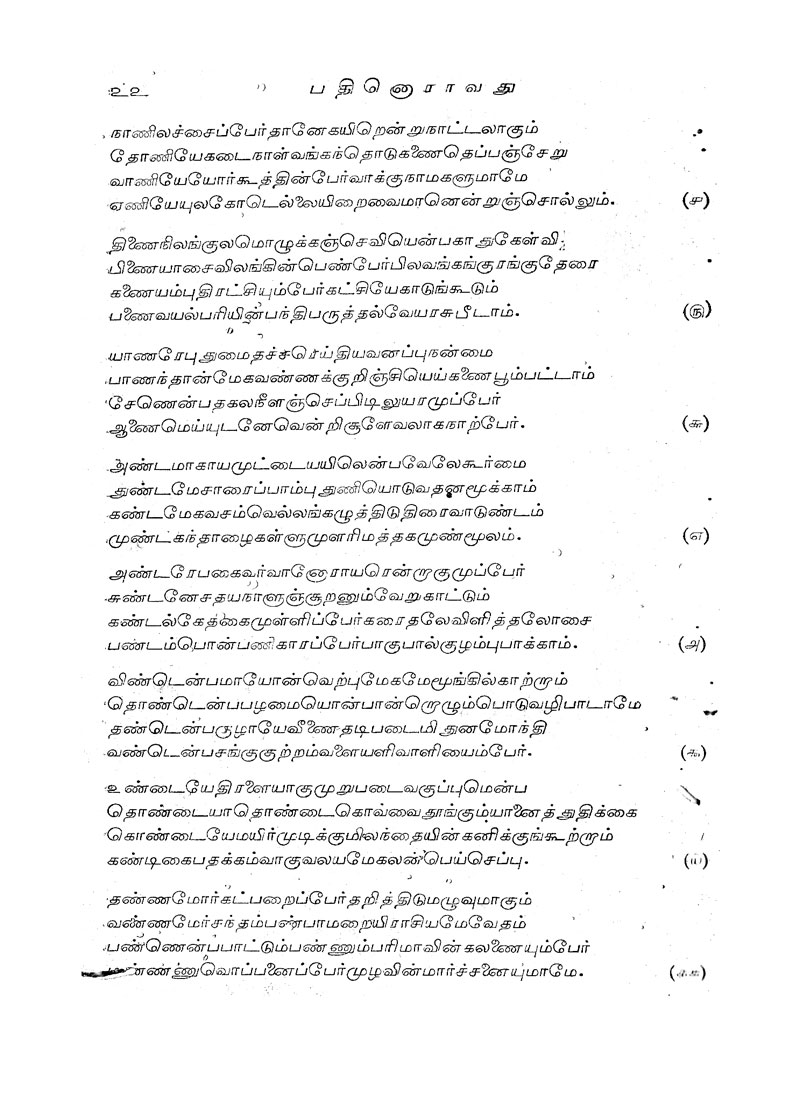 ௨௨ பதினொராவது
நாணிலச்சைப்பேர்தானேகயிறென்றுநாட்டலாகும்
தோணியேகடைநாள்வங்கந்தொடுகணைதெப்பஞ்சேறு
வாணியேயோர்கூத்தின்பேர்வாக்குநாமகளுமாமே
ஏணியேயுலகோடெல்லையிறைவைமானென்றுஞ்சொல்லும். (௪)
திணைநிலங்குலமொழுக்கஞ்செவியென்பகாதுகேள்வி
பிணையாசைவிலங்கின்பெண்பேர்பிலவங்கங்குரங்குதேரை
கணையம்புதிரட்சியும்பேர்கட்சியேகாடுங்கூடும்
பணைவயல்பரியின்பந்திபருத்தல்வேயரசுபீடாம். (௫)
யாணரேபுதுமைதச்சரெய்தியவனப்புநன்மை
பாணந்தான்மேகவண்ணக்குறிஞ்சியெய்கணைபூம்பட்டாம்
சேணென்பதகலநீளஞ்செப்பிடிலுயரமுப்பேர்
ஆணைமெய்யுடனேவென்றிசூளேவலாகநாற்பேர். (௬)
அண்டமாகாயமுட்டையயிலென்பவேலேகூர்மை
துண்டமேசாரைப்பாம்புதுணியொடுவதனமூக்காம்
கண்டமேகவசம்வெல்லங்கழுத்திடுதிரைவாடுண்டம்
முண்டகந்தாழைகள்ளுமுளரிமத்தகமுண்மூலம். (௭)
அண்டரேபகைவர்வானோராயரென்றாகுமுப்பேர்
சுண்டனேசதயநாளுஞ்சூறணும்வேறுகாட்டும்
கண்டல்கேத்கைமுள்ளிப்பேர்கரைதலேவிளித்தலோசை
பண்டம்பொன்பணிகாரப்பேர்பாகுபால்குழம்புபாக்காம். (௮)
விண்டென்பமாயோன்வெற்புமேகமேமூங்கில்காற்றாம்
தொண்டென்பபழமையொன்பான்றொழும்பொடுவழிபாடாமே
தண்டென்பருழாயேவீணைதடிபடைமிதுனமோந்தி
வண்டென்பசங்குகுற்றம்வளையளிவாளியைம்பேர். (௯)
உண்டையேதிரளையாகுமுறுபடைவகுப்புமென்ப
தொண்டையாதொண்டைகொவ்வைதூங்கும்யானைத்துதிக்கை
கொண்டையேமயிர்முடிக்குமிலந்தையின்கனிக்குங்கூற்றாம்
கண்டிகைபதக்கம்வாகுவலயமேகலன்பெய்செப்பு. (௰)
தண்ணமோர்கட்பறைப்பேர்தறித்திடுமழுவுமாகும்
வண்ணமேர்சந்தம்பண்பாமறையிராசியமேவேதம்
பண்ணென்பபாட்டும்பண்ணும்பரிமாவின்கலணையும்பேர்
ண்ணுவொப்பனைப்பேர்முழவின்மார்ச்சனையுமாமே.